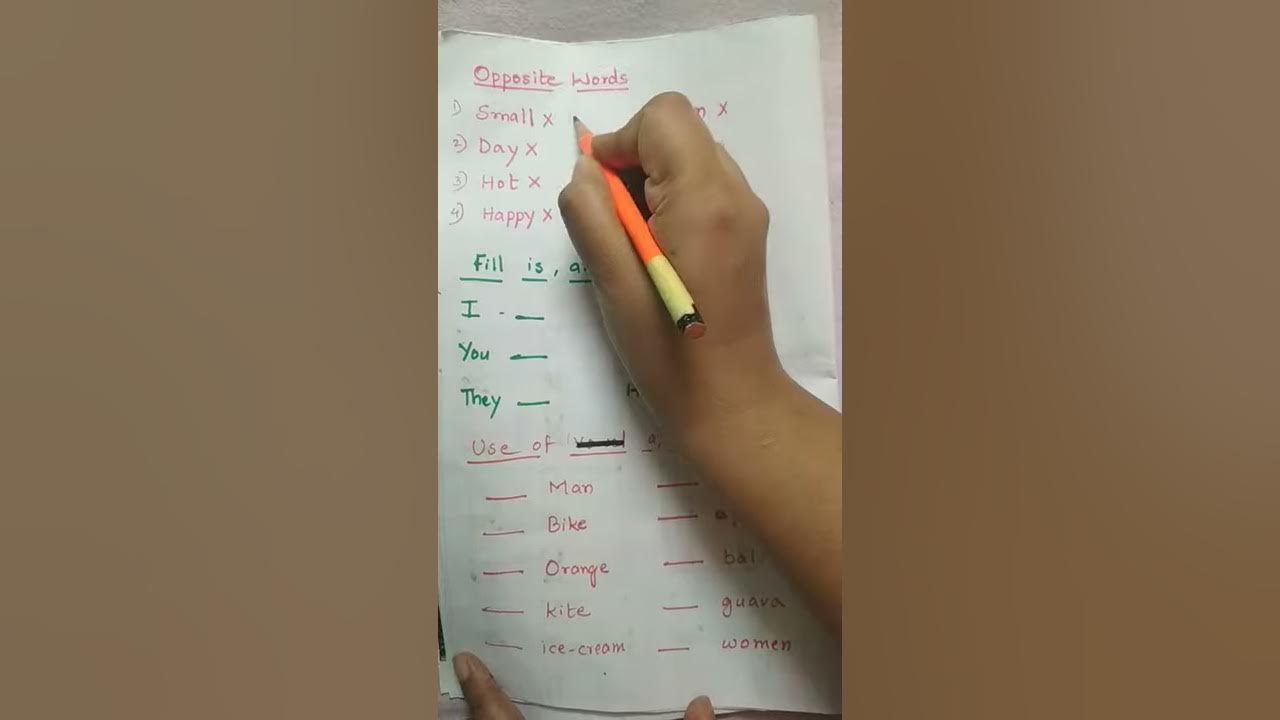 Opposite Words
1) Small x x
2) Day x
3) Hot x
4) Happy x
Fill is,
I - __
You __
They __
Use of a,
__ Man __
__ Bike __
__ Orange __
__ kite __ guava
__ ice-cream __ women